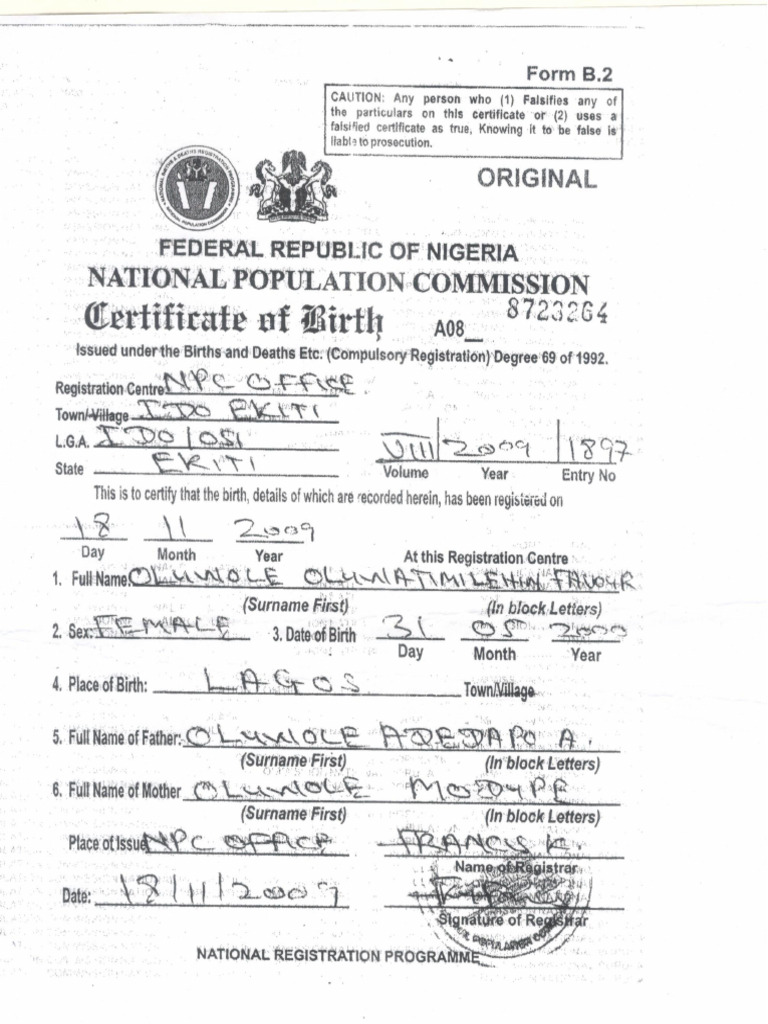 Form B.2
CAUTION: Any person who (1) Falsifies any of
the particulars on this certificate or (2) uses a
falsified certificate as true, Knowing it to be false is
liable to prosecution.
ORIGINAL
FEDERAL REPUBLIC OF NIGERIA
NATIONAL POPULATION COMMISSION
Certificate of Birth A08 8723264
Issued under the Births and Deaths Etc. (Compulsory Registration) Degree 69 of 1992.
Registration Centre NPC OFFICE
Town/Village IDO EKITI
L.G.A. IDO/OSI VIII 2009 1897
State EKITI Volume Year Entry No
This is to certify that the birth, details of which are recorded herein, has been registered on
18 11 2009
Day Month Year At this Registration Centre
1. Full Name: OLUWOLE OLUWATIMILEHIN FAVOUR
(Surname First) (In block Letters)
2. Sex: FEMALE 3. Date of Birth 31 05 2000
Day Month Year
4. Place of Birth: LAGOS Town/Village
5. Full Name of Father: OLUWOLE ADEDAPO A.
(Surname First) (In block Letters)
6. Full Name of Mother OLUWOLE MODUPE
(Surname First) (In block Letters)
Place of Issue NPC OFFICE FRANCIS K
Name of Registrar
Date: 18/11/2009
Signature of Registrar
NATIONAL REGISTRATION PROGRAMME